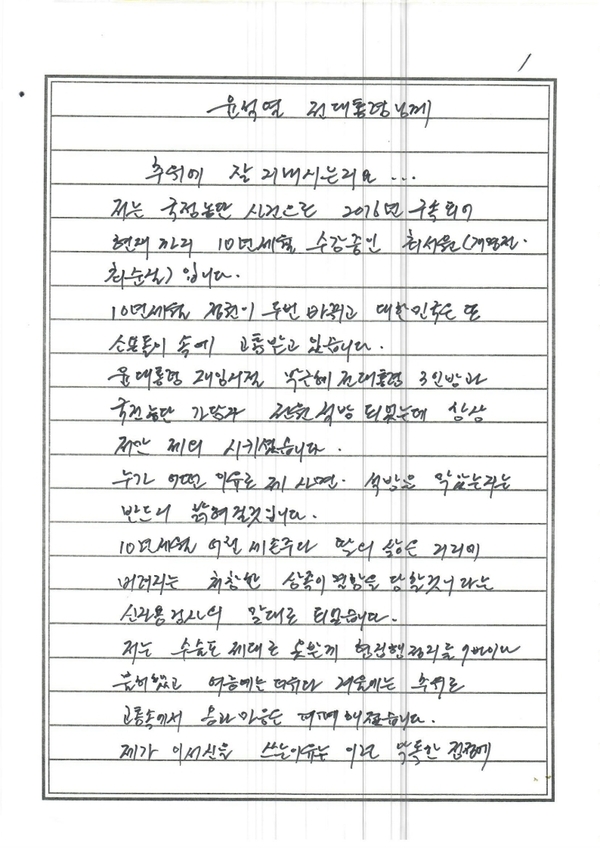 1
윤석열 전대통령님께
추위에 잘 지내시는지요...
저는 국정농단 사건으로 2016년 구속되어
현재까지 10년세월 수감중인 최서원(개명전.
최순실)입니다.
10년세월 정권이 두번 바뀌고 대한민국은 또
소용돌이 속에 고통받고 있습니다.
윤대통령 재임시절 박근혜 전대통령 3인방과
국정농단 가담자 전원 석방 되었는데 상상
저만 제외 시키셨습니다.
누가 어떤 이유로 제 사면. 석방을 막았는지는
반드시 밝혀질것입니다.
10년세월 어린 세손주와 딸의 삶은 거리에
버려지는 처참한 상황이 당할것이라는
신자용검사의 말대로 되었습니다.
저는 수술도 제대로 못받게 형집행정지를 9번이나
불허했고 여름에는 더위와 겨울에는 추위로
고통속에서 몸과 마음은 피폐해졌습니다.
제가 이서신을 쓰는이유는 이런 악독한 검찰에